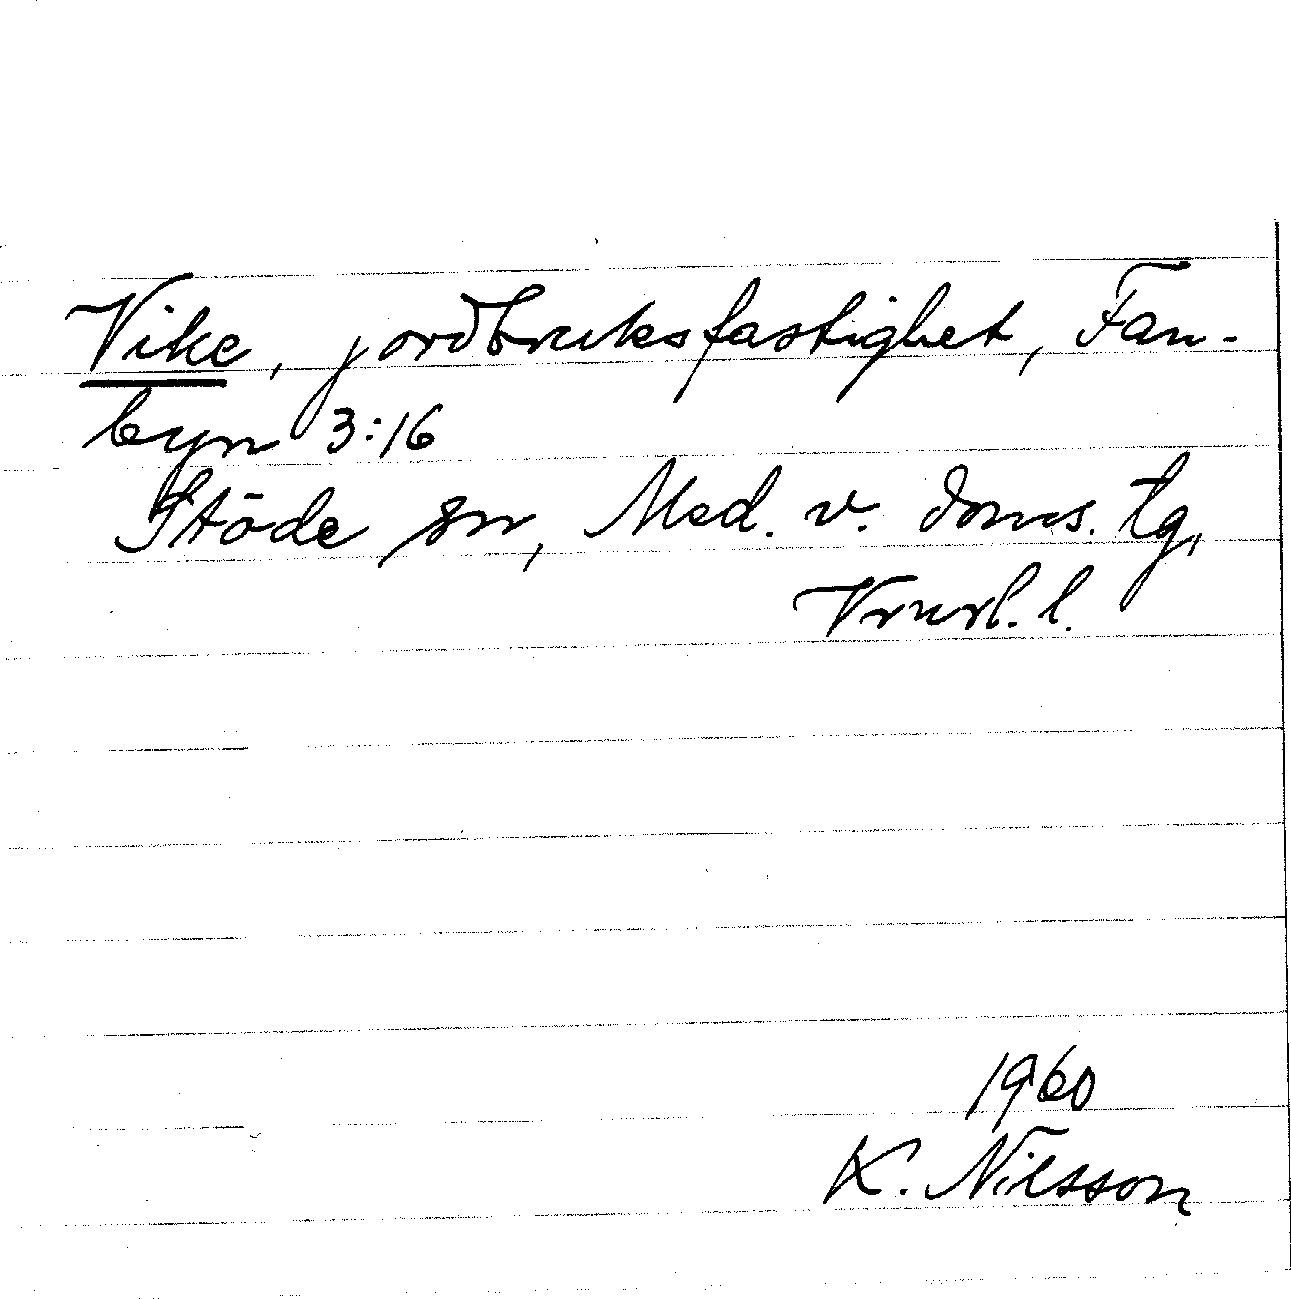 Vike, jordbruksfastighet, Fan-
byn 3:16
Stöde sn, Med. v. doms. tg,
Vrnrl. l.
1960
K. Nilsson